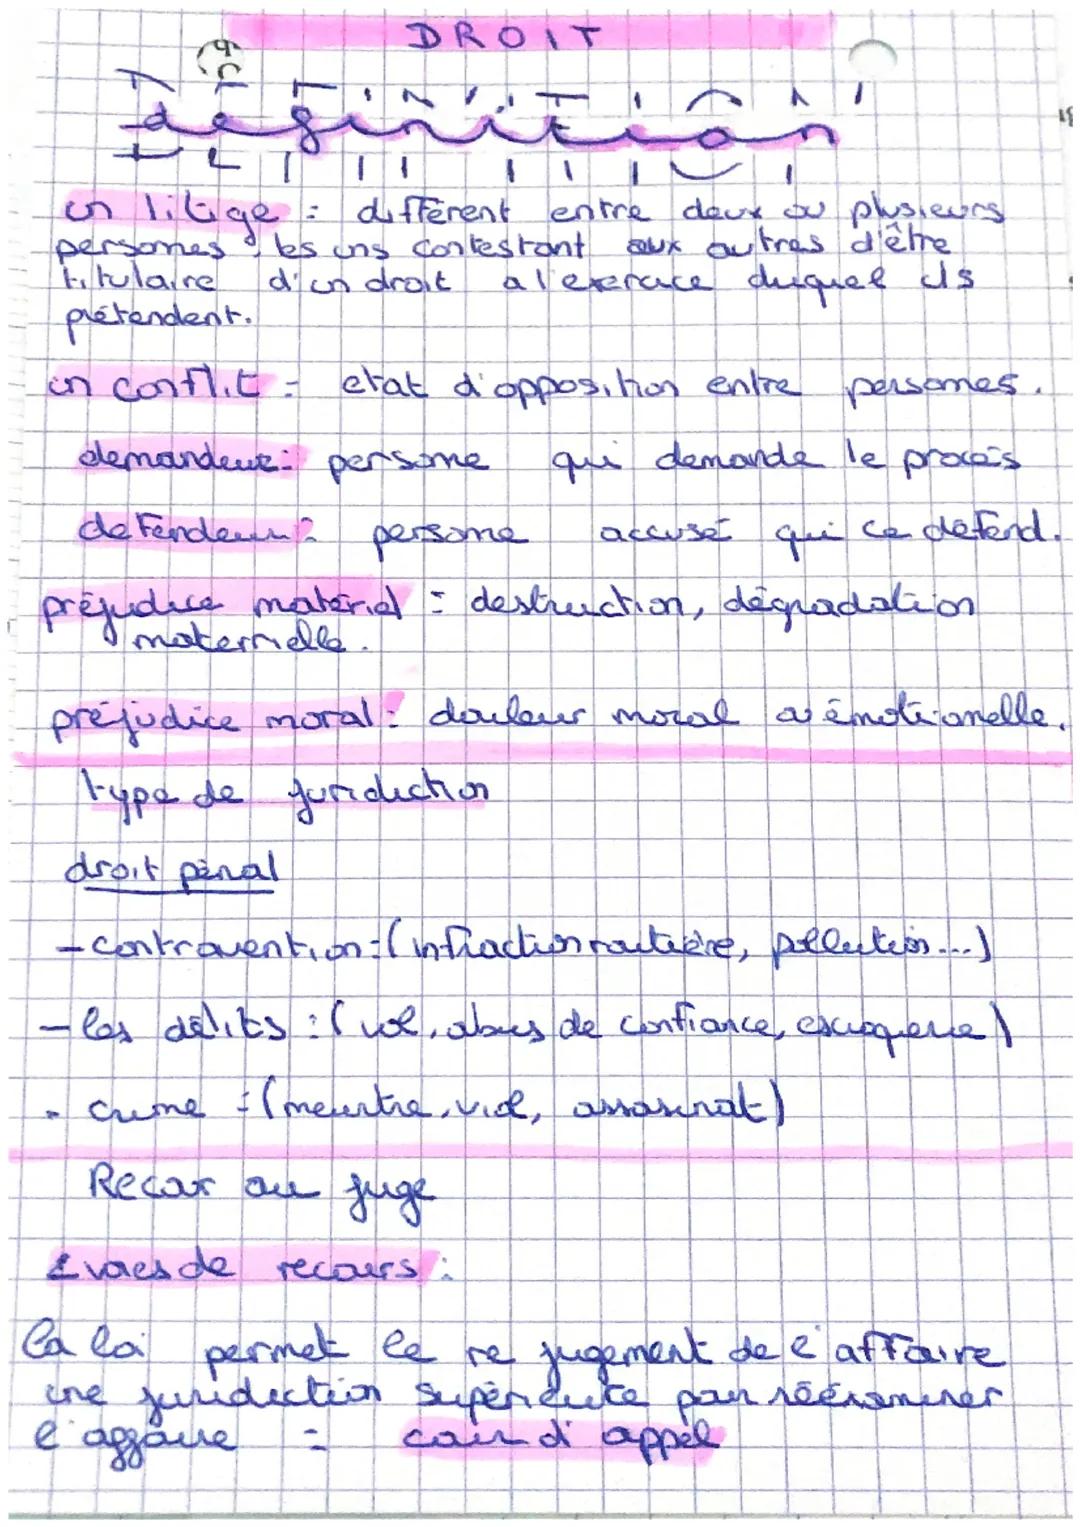 DROIT
définition
un litige : différent entre deux ou plusieurs
personnes, les uns contestant aux autres d'être
titulaire d'un droit a l'exercice duquel ils
prétendent.
un conflit = etat d'opposition entre personnes.
demandeur: personne qui demande le procès
defendeur: personne accusé qui ce défend.
préjudice matériel = destruction, dégradation
materrielle.
préjudice moral: douleur moral ou émotionelle.
type de juridiction
droit pénal
- contravention : (infraction routière, pollution...)
- les délits : (vol, abus de confiance, escroquerie)
- crime : (meurtre, viol, assasinat)
Recour au juge
2 voies de recours :
la loi permet le re jugement de l'affaire
une juridiction supérieure pour réexaminer
l'affaire = cour d'appel